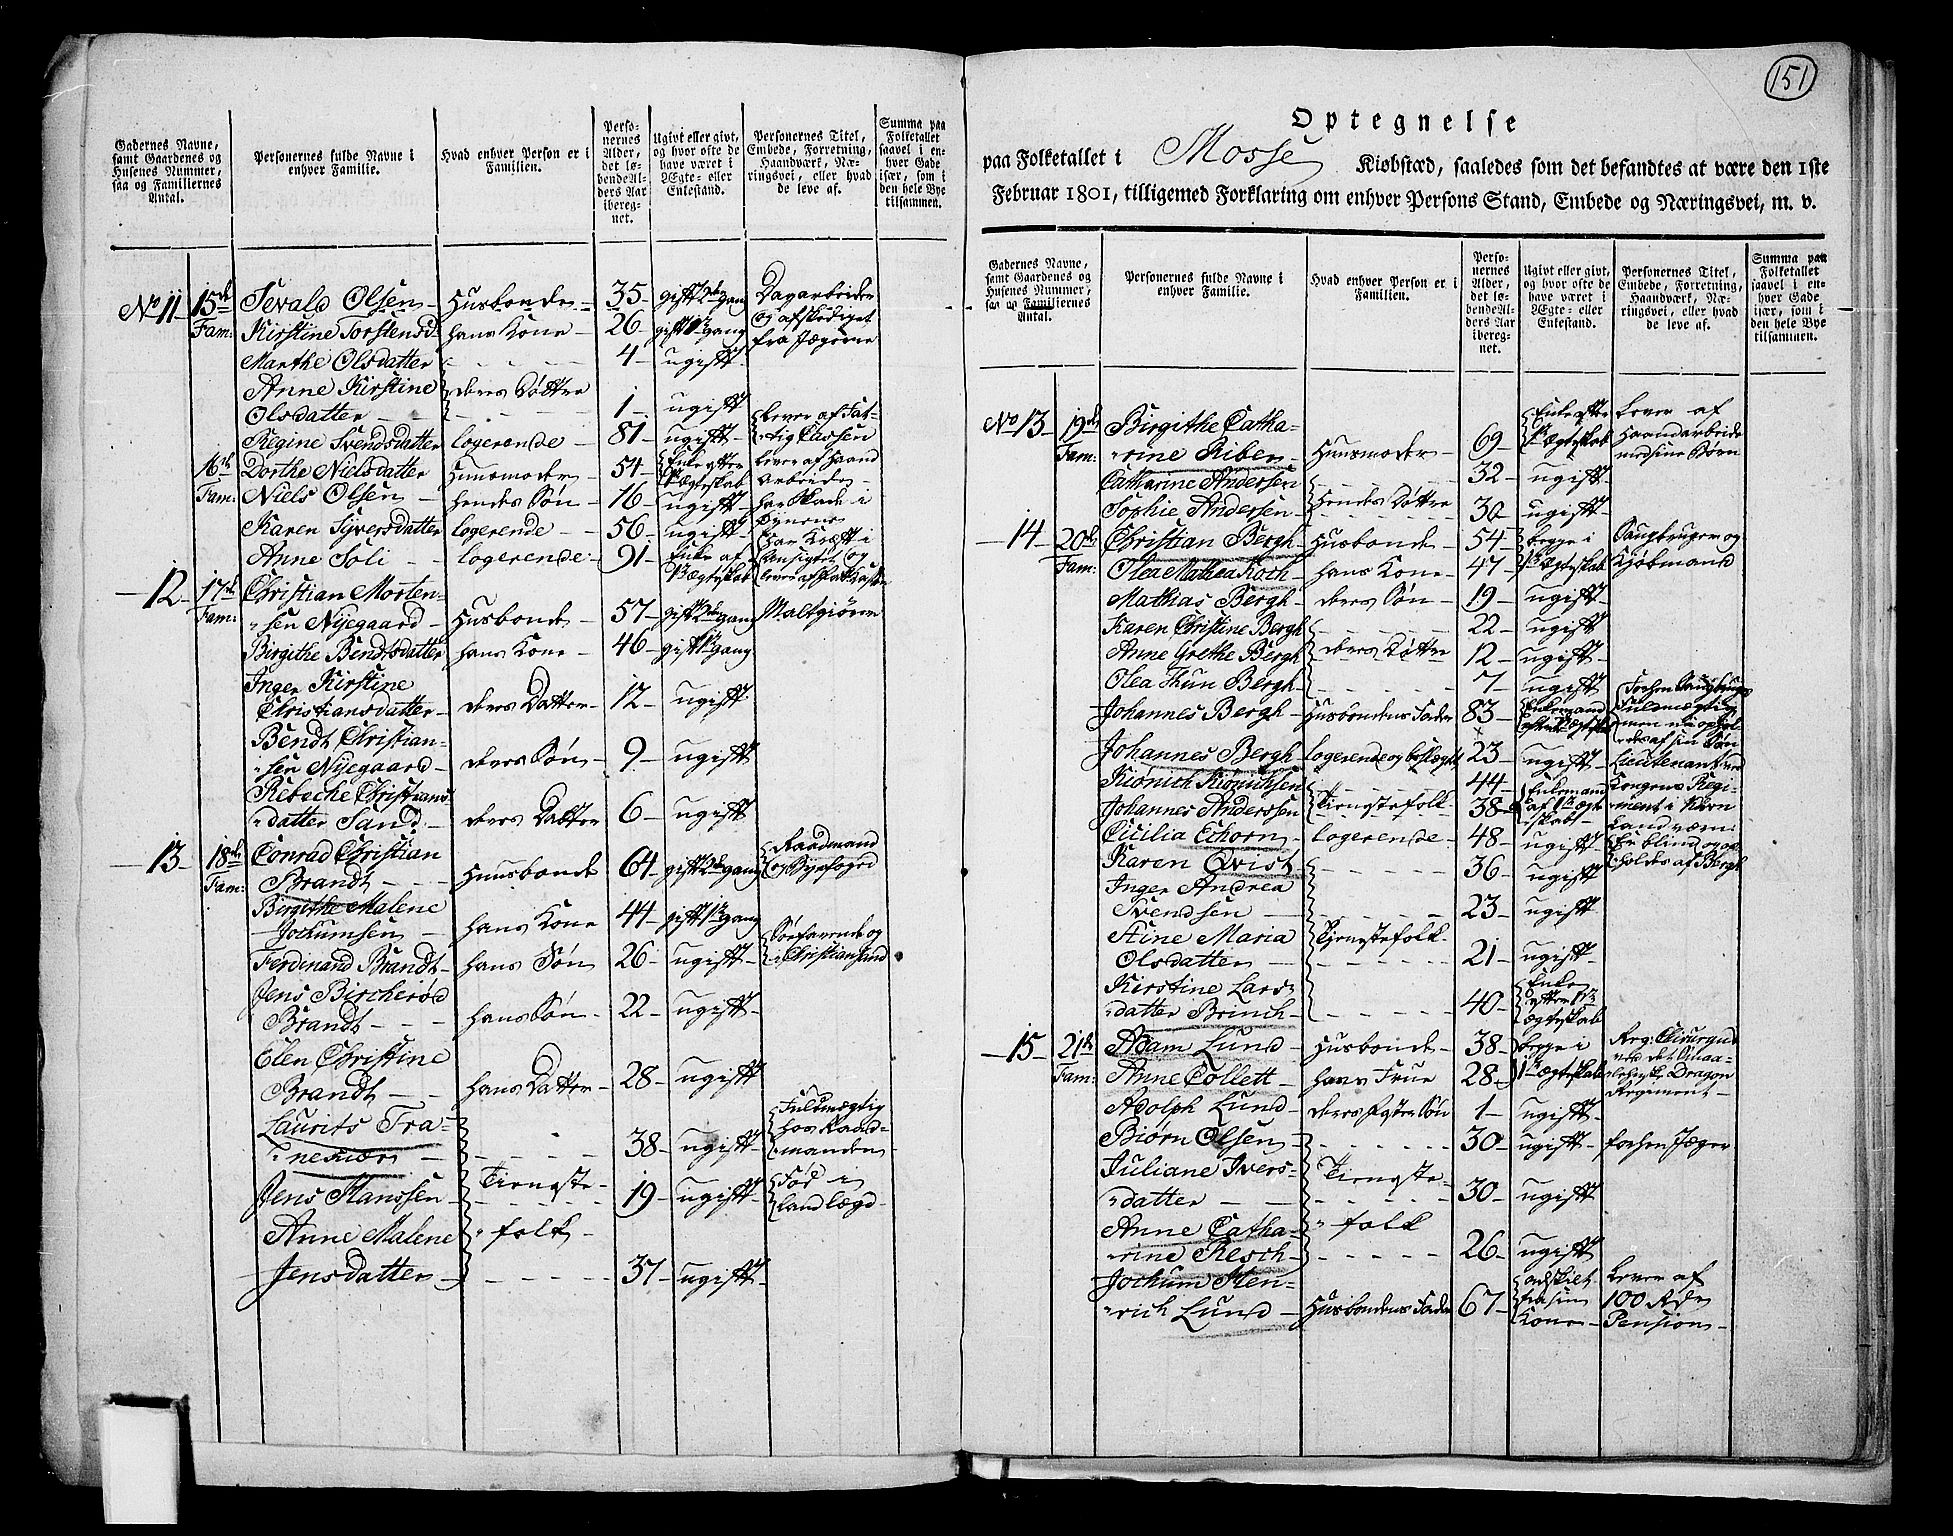 Gadernes Navne, samt Gaardenes og Husenes Nummer, saa og Familiernes Antal.
Personernes fulde Navne i enhver Familie.
Hvad enhver Person er i Familien.
Personernes Alder, det løbende Alders Aar iberegnet.
Ugivt eller givt, og hvor ofte de have været i Ægte- eller Enkestand.
Personernes Titel, Embede, Forretning, Haandværk, Næringsvei, eller hvad de leve af.
Summa paa Folketallet saavel i enhver Gade især, som i den hele Bye tilsammen.
No 11 15de Fam: Sevald Olsen Husbonde 35 gift 2den gang Dagarbeider
Kirstine Torstensd. hans Kone 26 gift 1te gang og afskediget
Marthe Olsdatter 4 ugift fra Jægerne
Anne Kirstine deres Døttre
Olsdatter 1 ugift
Regine Svendsdatter logerende 81 ugift lever af Fattig Cassen
16de Fam: Dorthe Nielsdatter Huusmoder 54 Enke efter 1te Ægteskab lever af Haand arbeide
Niels Olsen hendes Søn 16 ugift har Skade i Øynene
Karen Syversdatter logerende 56 ugift
Anne Soli logerende 91 Enke af 1te Ægteskab
12 17de Fam: Christian Morten-
sen Nyegaard Husbonde 57 gift 2den gang Maltgiører
Birgithe Bendtsdatter hans Kone 46 gift 1te gang
Inger Kirstine
Christiansdatter deres Datter 12 ugift
Bendt Christian-
sen Nyegaard deres Søn 9 ugift
Rebecke Christians-
datter Sand deres Datter 6 ugift
13 18de Fam: Conrad Christian Raadmand
Brandt Huusbonde 64 gift 2den gang og Byefoged
Birgithe Malene
Jochumsen hans Kone 44 gift 1te gang
Ferdinand Brandt hans Søn 26 ugift Søefarende og i Christiansand
Jens Bircherød
Brandt hans Søn 22 ugift
Elen Christine
Brandt hans Datter 28 ugift
Laurits Tra-
nekiær 38 ugift Fuldmægtig hos Raadmanden
Jens Hanssen Tieneste- 19 ugift Fød i landlægd
Anne Malene folk
Jensdatter 37 ugift
151
Optegnelse
paa Folketallet i Mosse Kiøbstæd, saaledes som det befandtes at være den 1ste
Februar 1801, tilligemed Forklaring om enhver Persons Stand, Embede og Næringsvei, m. v.
Gadernes Navne, samt Gaardenes og Husenes Nummer, saa og Familiernes Antal.
Personernes fulde Navne i enhver Familie.
Hvad enhver Person er i Familien.
Personernes Alder, det løbende Alders Aar iberegnet.
Ugivt eller givt, og hvor ofte de have været i Ægte- eller Enkestand.
Personernes Titel, Embede, Forretning, Haandværk, Næringsvei, eller hvad de leve af.
Summa paa Folketallet saavel i enhver Gade især, som i den hele Bye tilsammen.
No 13 19de Fam: Birgithe Catha- Enke efter lever af
rine Riber Huusmoder 69 1te Ægteskab Haandarbeide med sine Børn
Catharine Andersen 32 ugift
Sophie Andersen Hendes Døttre 30 ugift
14 20de Fam: Christian Bergh Husbonde 54 begge i Saugbruger og
Olea Mathea Koch hans Kone 47 1te Ægteskab Kjøbmand
Mathias Bergh deres Søn 19 ugift
Karen Christine Bergh 22 ugift
Anne Grethe Bergh deres Døttre 12 ugift
Olea Thun Bergh 7 ugift
Johannes Bergh Husbondens Fader 83 Enkemand
Johannes Bergh logerende og beslægtet 23 ugift Lieutenant ved
44 Kongens Regi-
Johannes Anderssen Tienestefolk 38 Enkemand af 1te Ægteskab ment i Kiøn
Cicilia Echorn logerende 48 ugift Er blind og op-
Karen Qvist 36 ugift holdes af Bergh
Inger Andrea
Svendsen 23 ugift
Stine Maria Tienestefolk
Olsdatter 21 ugift
Kirstine Lars-
datter Brinch 40 Enke efter 1te ægteskab
15 21de Fam: Adam Lund Husbonde 38 begge i Reg: Chirurgus
Anne Collett hans Frue 28 1te Ægteskab ved det Dragon Regement
Adolph Lund deres Søn 1 ugift
Biørn Olsen 30 ugift forhen Jæger
Juliane Ivers- Tieneste-
datter 30 ugift
Anne Catha- folk
rine Resch 26 ugift
Jochum Hen- adskilt lever af
rich Lund Husbondens Fader 67 fra sin Kone 100 Rdr Pension